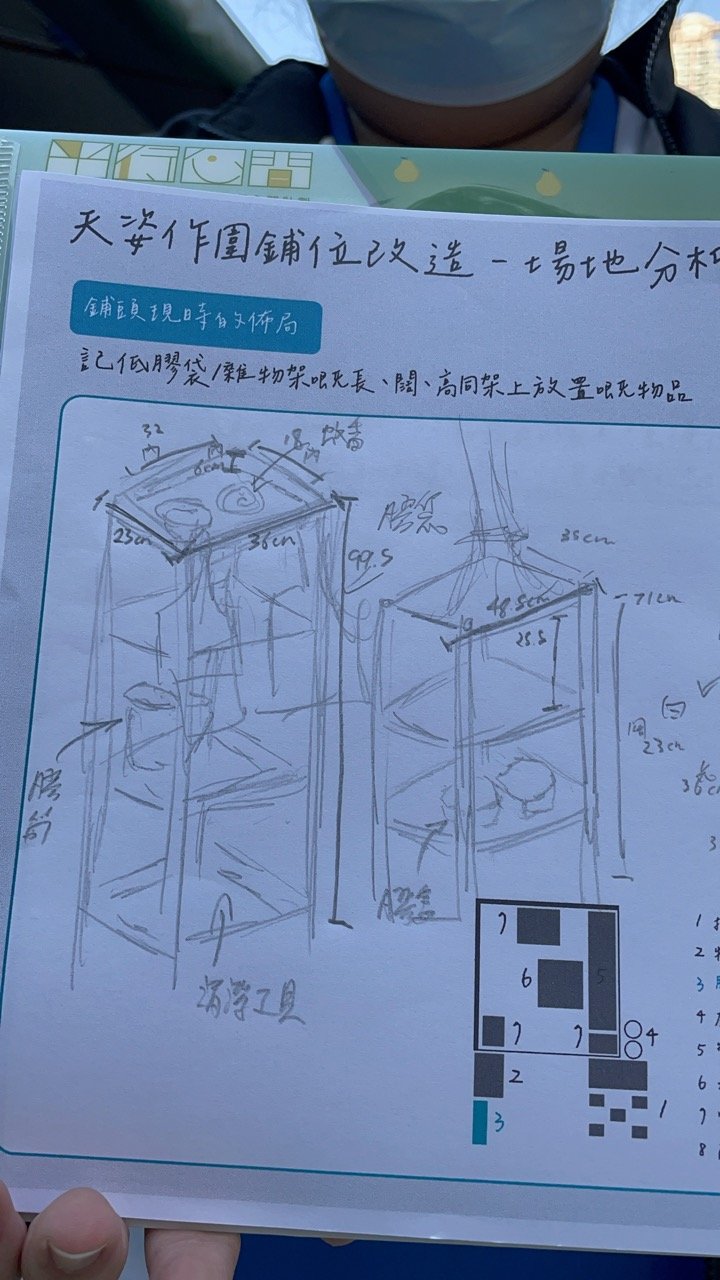 平行心若
天姿作圍鋪位改造 - 場地分析
鋪頭現時的佈局
記低膠袋/雜物架嘅長、闊、高同架上放置嘅物品
32
6cm
18
蚊香
23cm
36cm
99.5
膠袋
35cm
48.5cm
71cm
25.5
23cm
36cm
3
膠筒
膠盒
清潔工具
7
6
5
7
7
4
2
1
3
1
2
3
4
5
6
7
8